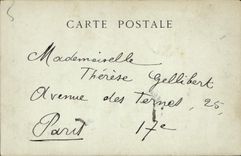 CARTE POSTALE
Mademoiselle
Thérèse Gellibert
Avenue des Ternes, 25,
Paris 17e